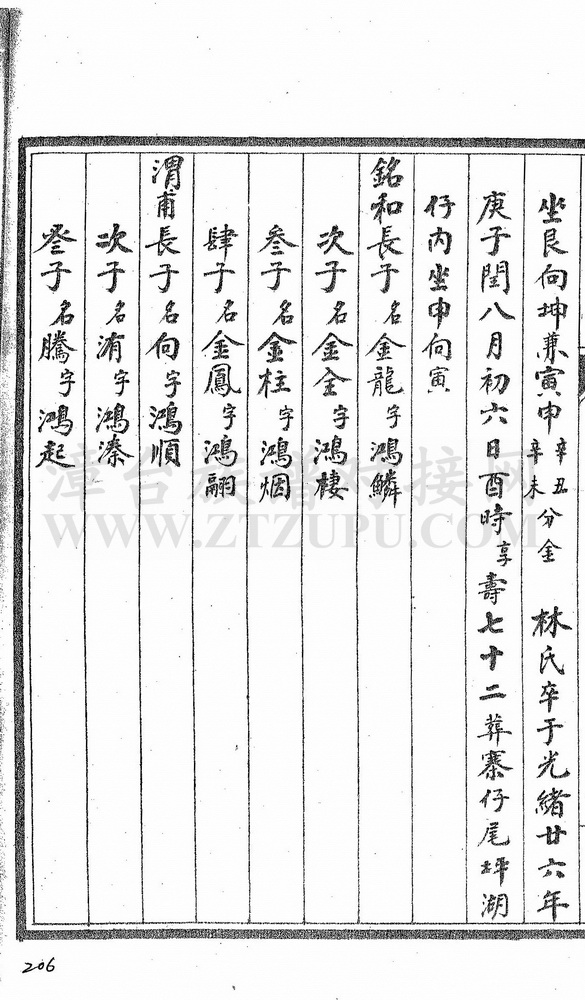 坐艮向坤兼寅申辛丑辛未分金　林氏卒于光緒廿六年
庚子閏八月初六日酉時享壽七十二葬寨仔尾坪湖
仔内坐申向寅
銘和長子名金龍字鴻鱗
次子名金全字鴻棲
叁子名金柱字鴻烟
肆子名金鳳字鴻翮
渭甫長子名向字鴻順
次子名洧字鴻溱
叁子名騰字鴻起
漳台族譜对接网
WWW.ZTZUPU.COM
206